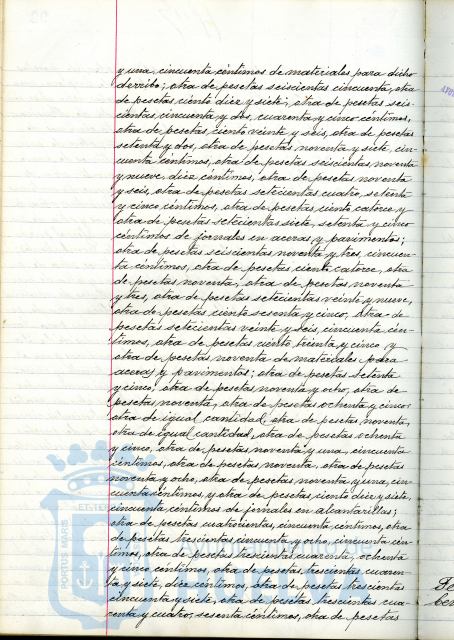 y una, cincuenta céntimos de materiales para dicho
derribo; otra de pesetas seiscientas cincuenta, otra
de pesetas ciento diez y siete, otra de pesetas seis-
cientas cincuenta y dos, cuarenta y cinco céntimos,
otra de pesetas ciento veinte y seis, otra de pesetas
setenta y dos, otra de pesetas noventa y siete, cin-
cuenta céntimos, otra de pesetas seiscientas noventa
y nueve, diez céntimos, otra de pesetas noventa
y seis, otra de pesetas setecientas cuatro, setenta
y cinco céntimos, otra de pesetas ciento catorce, y
otra de pesetas setecientas siete, setenta y cinco
céntimos de jornales en aceras y pavimentos;
otra de pesetas seiscientas noventa y tres, cincuen-
ta céntimos, otra de pesetas ciento catorce, otra
de pesetas noventa, otra de pesetas noventa
y tres, otra de pesetas setecientas veinte y nueve,
otra de pesetas ciento sesenta y cinco, otra de
pesetas setecientas veinte y seis, cincuenta cén-
timos, otra de pesetas ciento treinta y cinco y
otra de pesetas noventa de materiales para
aceras y pavimentos; otra de pesetas setenta
y cinco, otra de pesetas noventa y ocho, otra de
pesetas noventa, otra de pesetas ochenta y cinco
otra de igual cantidad, otra de pesetas noventa,
otra de igual cantidad, otra de pesetas ochenta
y cinco, otra de pesetas noventa y una, cincuenta
céntimos, otra de pesetas noventa, otra de pesetas
noventa y ocho, otra de pesetas noventa y una, cin-
cuenta céntimos y otra de pesetas ciento diez y siete,
cincuenta céntimos de jornales en alcantarillas;
otra de pesetas cuatrocientas, cincuenta céntimos, otra
de pesetas trescientas cincuenta y ocho, cincuenta cén-
timos, otra de pesetas trescientas cuarenta, ochenta
y cinco céntimos, otra de pesetas trescientas cuaren-
ta y siete, diez céntimos, otra de pesetas trescientas
cincuenta y siete, otra de pesetas trescientas cua-
renta y cuatro, sesenta céntimos, otra de pesetas
PORTUS MARIS